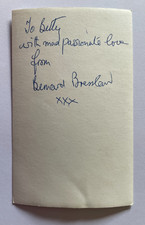 To Betty
with mad passionate love
from
Bernard Bresslaw
xxx